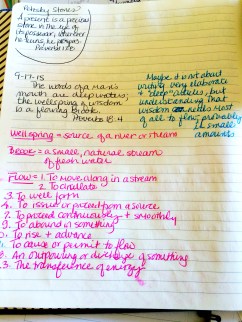 Potentcy Stones?
A present is a precious
stone in the eye of
its possessor, whether
he turns, he prospers.
Proverbs 17:8
9-17-15
The words of a man's
mouth are deep waters;
the wellspring of wisdom
is a flowing brook.
Proverbs 18:4
Maybe it's not about
writing very elaborate
+ "deep" articles, but
understanding that
wisdom needs most
of all to flow, preferably
in small
amounts
Wellspring = source of a river or stream
Brook = a small, natural stream
of fresh water
Flow = 1. To move along in a stream
2. To circulate
3. To well forth
4. To issue or proceed from a source
7. To proceed continuously + smoothly
9. To abound in something
To rise + advance
To cause or permit to flow
An outpouring or discharge of something
3. The transference of energy